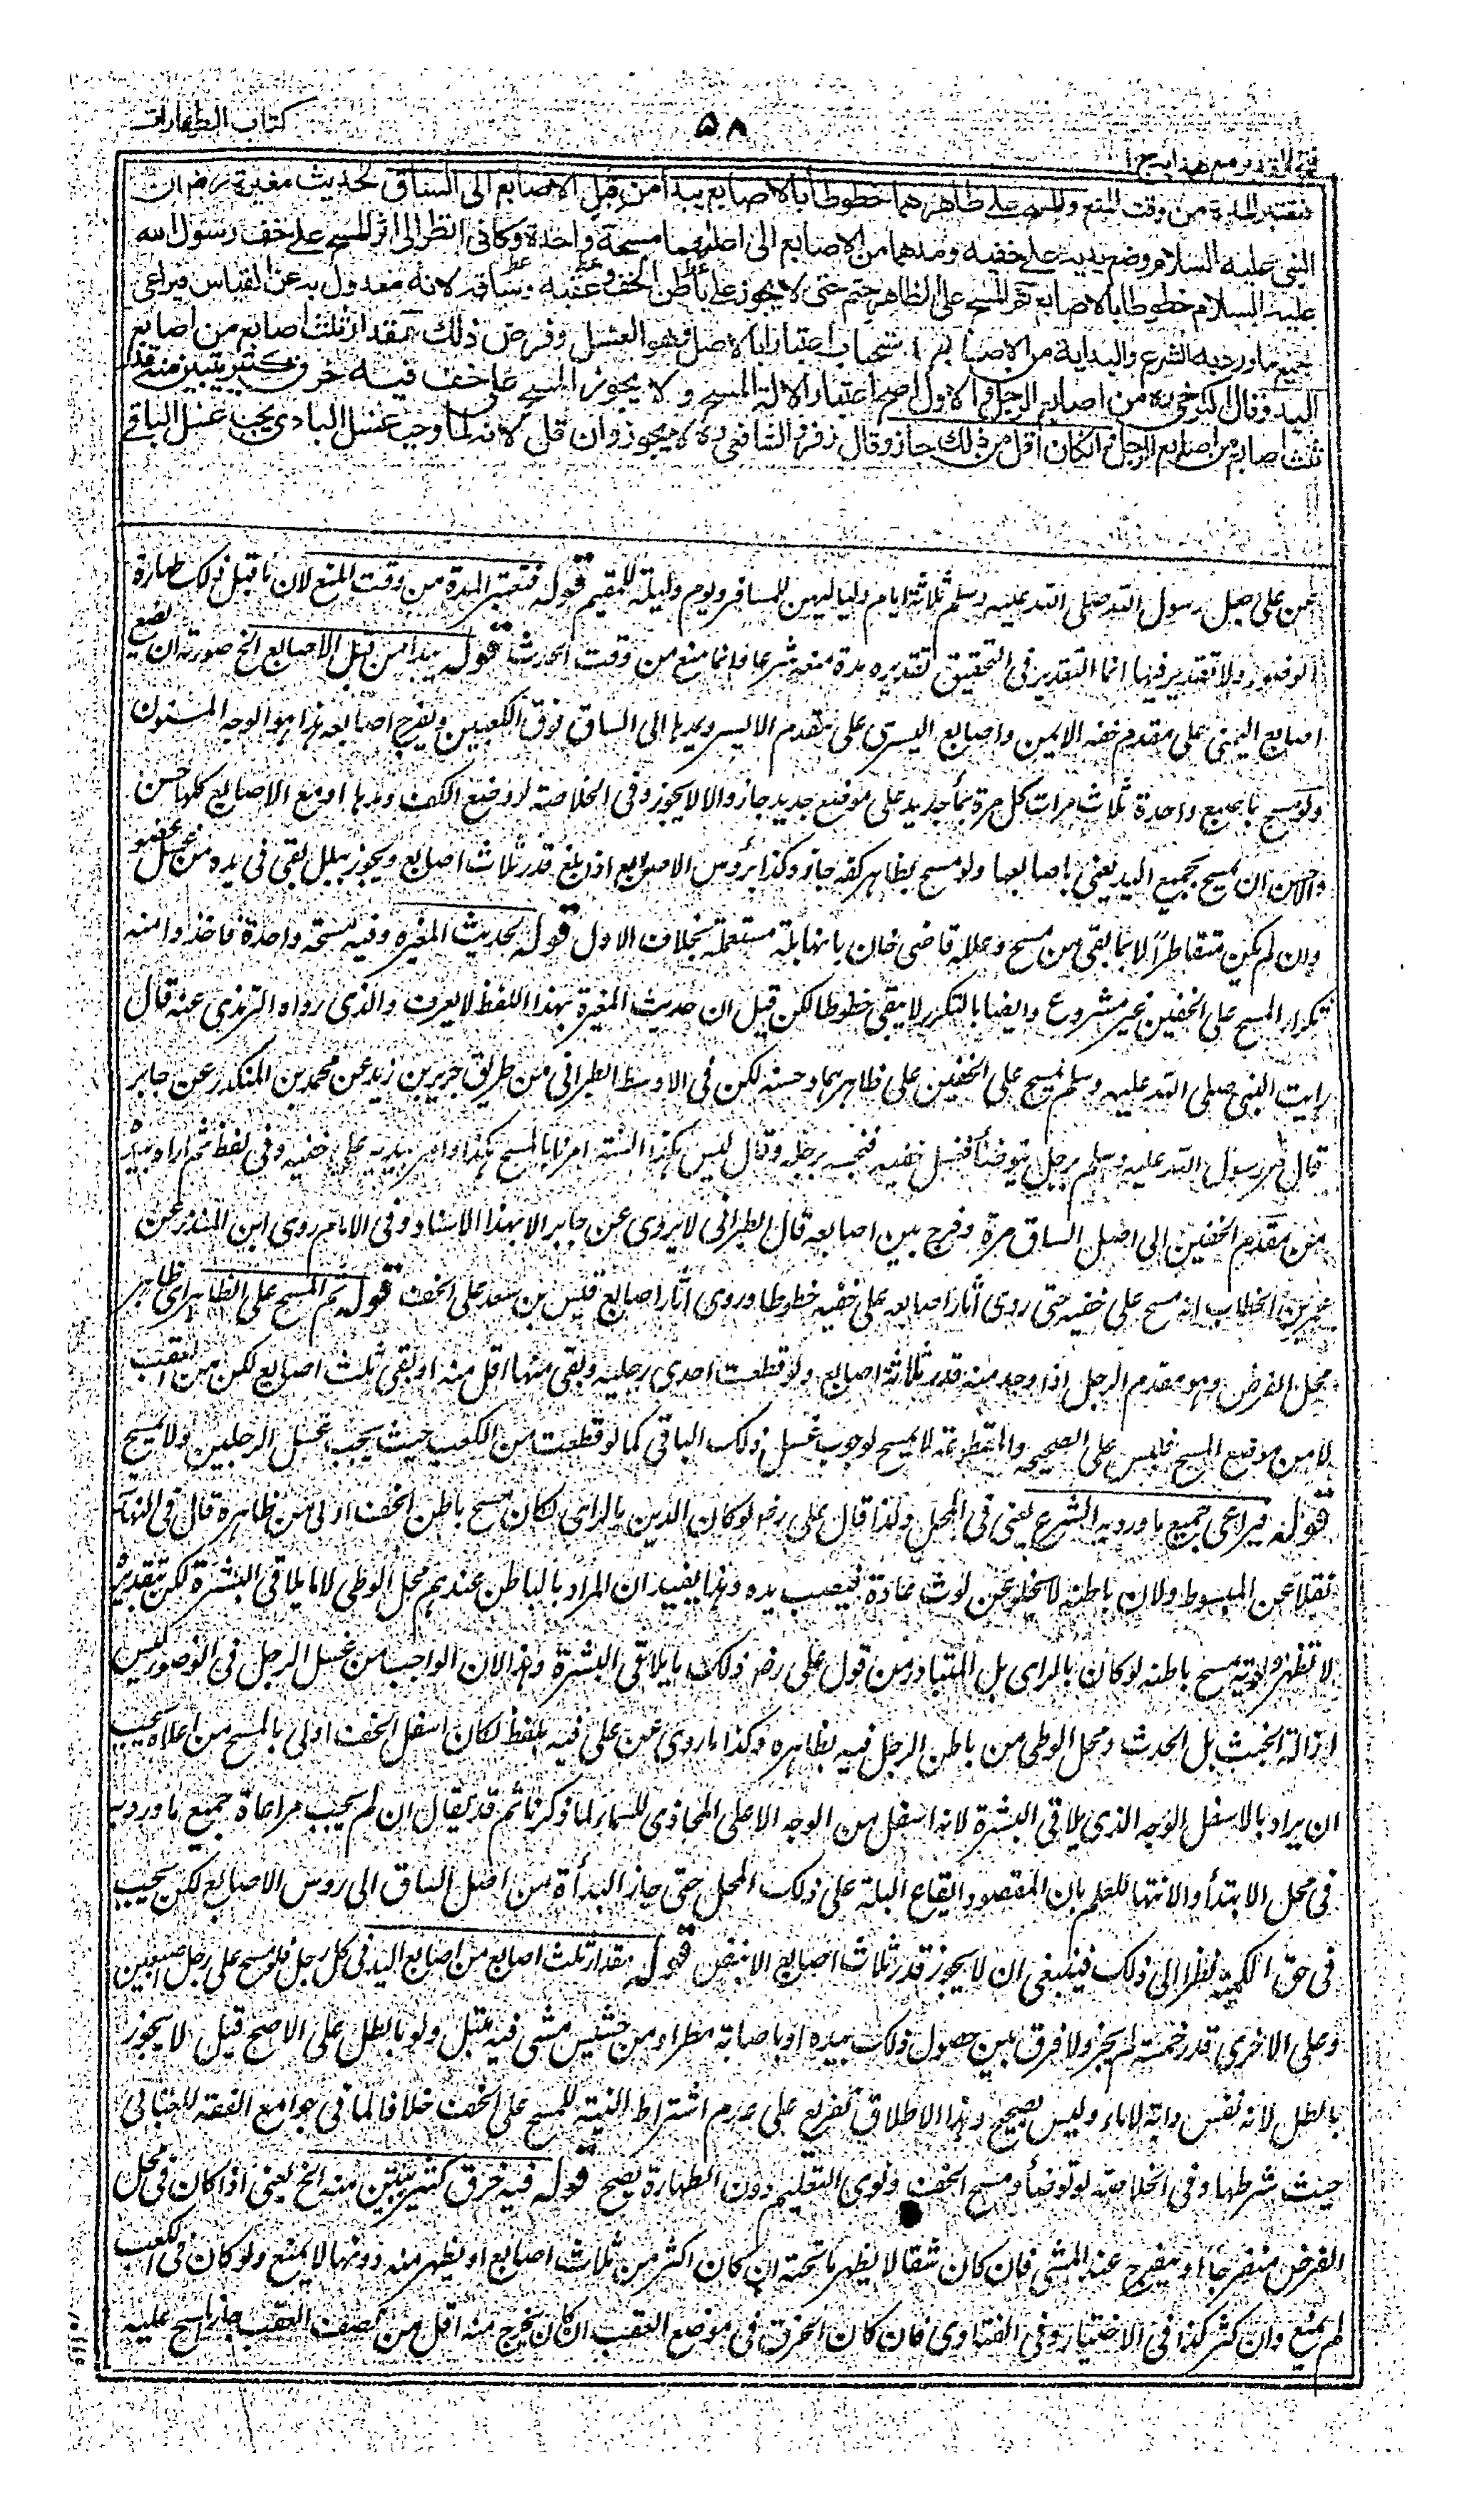 كتاب الطهارات
٥٨
فتح القدير مع هدايه ج ١
فتعتبر المدة من وقت المنع والمسح على ظاهرهما خطوطا بالاصابع يبدأ من قبل الاصابع الى الساق لحديث مغيرة رضـ ان
النبي عليه السلام وضع يديه على خفيه ومدهما من الاصابع الى اعلاهما مسحة واحدة وكاني انظر الى اثر المسح على خف رسول الله
عليه السلام خطوطا بالاصابع ثم المسح على الظاهر حتم حتى لا يجوز على باطن الخف وعقبه وساقه لانه معدول به عن القياس فيراعى
جميع ما ورد به الشرع والبداية من الاصابع استحباب اعتبارا بالاصل وهو الغسل وفرض ذلك مقدار ثلث اصابع من اصابع
اليد وقال الكرخي ره من اصابع الرجل والاول اصح اعتبارا لالة المسح ولا يجوز المسح على خف فيه خرق كثير يتبين منه قدر
ثلث اصابع من اصابع الرجل فان كان اقل من ذلك جاز وقال زفر والشافعي ره لا يجوز وان قل لانه لما وجب غسل البادى يجب غسل الباقي
عن على جعل رسول الله صلى الله عليه وسلم ثلاثة ايام ولياليهن للمسافر ويوم وليلة للمقيم قوله فتعتبر المدة من وقت المنع لان ما قبل ذلك طهارة
الوضوء ولا تقدير فيها انما التقدير في التحقيق تقديره مدة منعه شرعا وانما منع من وقت الحدث قوله يبدأ من قبل الاصابع الخ صورته ان يضع
اصابع اليمنى على مقدم خفه الايمن واصابع اليسرى على مقدم الايسر ويمدها الى الساق فوق الكعبين ويفرج اصابعه هذا هو الوجه المسنون
ولو مسح باصبع واحدة ثلاث مرات كل مرة بماء جديد على موضع جديد جاز والا لا يجوز وفي الخلاصة لو وضع الكف ومدها او مع الاصابع كلها حسن
والاحسن ان يمسح بجميع اليد يعني باصابعها ولو مسح بظاهر كفه جاز وكذا برؤس الاصابع اذا بلغ قدر ثلاث اصابع ويجوز ببلل بقي في يده من غسل عضو
وان لم يكن متقاطرا لا بما بقي من مسح وعلله قاضي خان بانها بلة مستعملة بخلاف الاول قوله لحديث المغيرة وفيه مسحة واحدة فاخذوا منه
تكرار المسح على الخفين غير مشروع وايضا بالتكرر لا يبقى خطوطا لكن قيل ان حديث المغيرة بهذا اللفظ لا يعرف والذي رواه الترمذي عنه قال
رايت النبي صلى الله عليه وسلم يمسح على الخفين على ظاهرهما وحسنه لكن في الاوسط الطبراني من طريق جرير بن زيد عن محمد بن المنكدر عن جابر
قال مر رسول الله عليه وسلم برجل يتوضأ فغسل خفيه فنخسه برجله وقال ليس هكذا السنة امرنا بالمسح هكذا وامر يديه على خفيه وفي لفظ ثم اراه بيده
من مقدم الخفين الى اصل الساق مرة وفرج بين اصابعه قال الطبراني لا يروى عن جابر الا بهذا الاسناد وفي الامام روى ابن المنذر عن
عمر بن الخطاب انه مسح على خفيه حتى روى آثار اصابعه على خفيه خطوطا وروى آثار اصابع قيس بن سعد على الخف قوله ثم المسح على الظاهر اى ظاهر
محل الفرض وهو مقدم الرجل اذا وجد منه قدر ثلاثة اصابع ولو قطعت احدى رجليه وبقي منها اقل منه او بقي ثلث اصابع لكن من العقب
لا من موضع المسح فلبس على الصحيحة والمقطوعة لا يمسح لوجوب غسل ذلك الباقي كما لو قطعت من الكعب حيث يجب غسل الرجلين ولا يمسح
قوله فيراعى جميع ما ورد به الشرع يعني في المحل ولذا قال على رضـ لو كان الدين بالراى لكان مسح باطن الخف اولى من ظاهره قال في النهاية
نقلا عن المبسوط ولان باطنه لا يخلو عن لوث عادة فيصيب يده وهذا يفيد ان المراد بالباطن عندهم محل الوطى لا ما يلاقي البشرة لكن بتقديره
لا تظهر اولوية مسح باطنه لو كان بالراى بل المتبادر من قول على رضـ ذلك ما يلاقي البشرة وهذا لان الواجب من غسل الرجل في الوضوء ليس
ازالة الخبث بل الحدث ومحل الوطى من باطن الرجل فيه بظاهره وكذا ما روى عن على فيه بلفظ لكان اسفل الخف اولى بالمسح من اعلاه يجب
ان يراد بالاسفل الوجه الذي يلاقي البشرة لانه اسفل من الوجه الاعلى المحاذى للسماء لما ذكرنا ثم قد يقال ان لم يجب مراعاة جميع ما ورد به
في محل الابتدأ والانتها للعلم بان المقصود ايقاع البلة على ذلك المحل حتى جاز البدأة من اصل الساق الى روس الاصابع لكن يجب
في حق الكمية نظرا الى ذلك فينبغي ان لا يجوز قدر ثلاث اصابع الا بنص قوله مقدار ثلث اصابع من اصابع اليد في كل رجل فلو مسح على رجل اصبعين
وعلى الاخرى قدر خمسة لم يجز ولا فرق بين حصول ذلك بيده او باصابة مطر او من حشيش مشى فيه مبتل ولو بالطل على الاصح قيل لا يجوز
بالطل لانه نفس دابة لا ماء وليس بصحيح وهذا الاطلاق تفريع على عدم اشتراط النية للمسح على الخف خلافا لما في جوامع الفقه للعتابي
حيث شرطها وفي الخلاصة لو توضأ ومسح الخف ونوى التعليم دون الطهارة يصح قوله فيه خرق كثير يتبين منه الخ يعني اذا كان في محل
الفرض منفرجا او ينفرج عند المشي فان كان شقا لا يظهر ما تحته ان كان اكثر من ثلاث اصابع او يظهر منه دونها لا يمنع ولو كان في الكعب
لم يمنع وان كثر كذا في الاختيار وفي الفتاوى فان كان الخرق في موضع العقب ان كان يخرج منه اقل من نصف العقب جاز المسح عليه